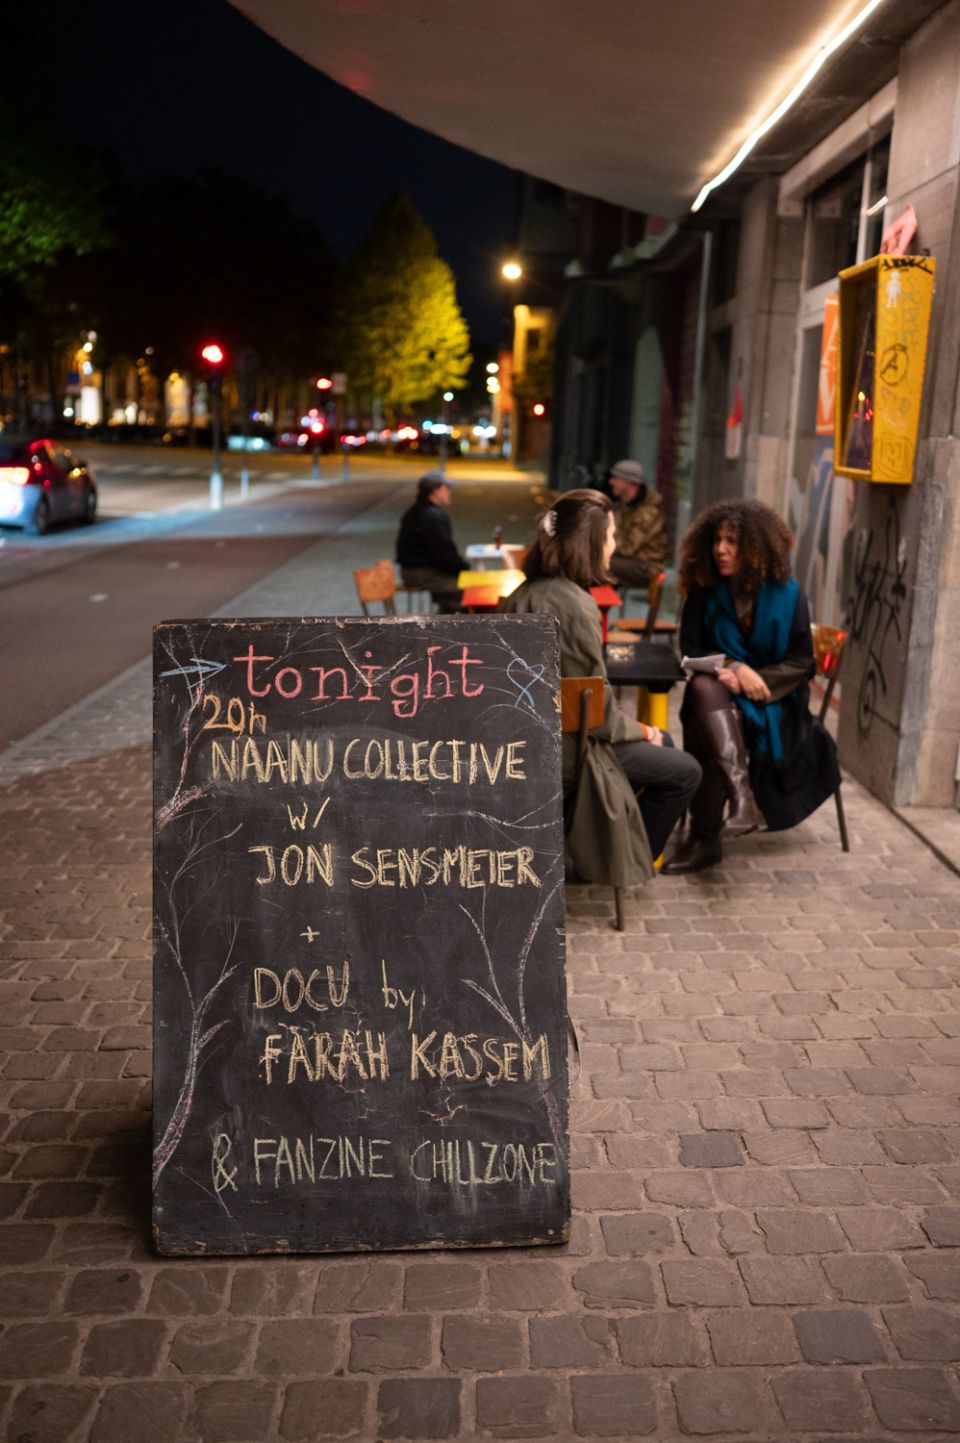 tonight
20h
NAANU COLLECTIVE
w/
JON SENSMEIER
+
DOCU by
FARAH KASSEM
& FANZINE CHILLZONE